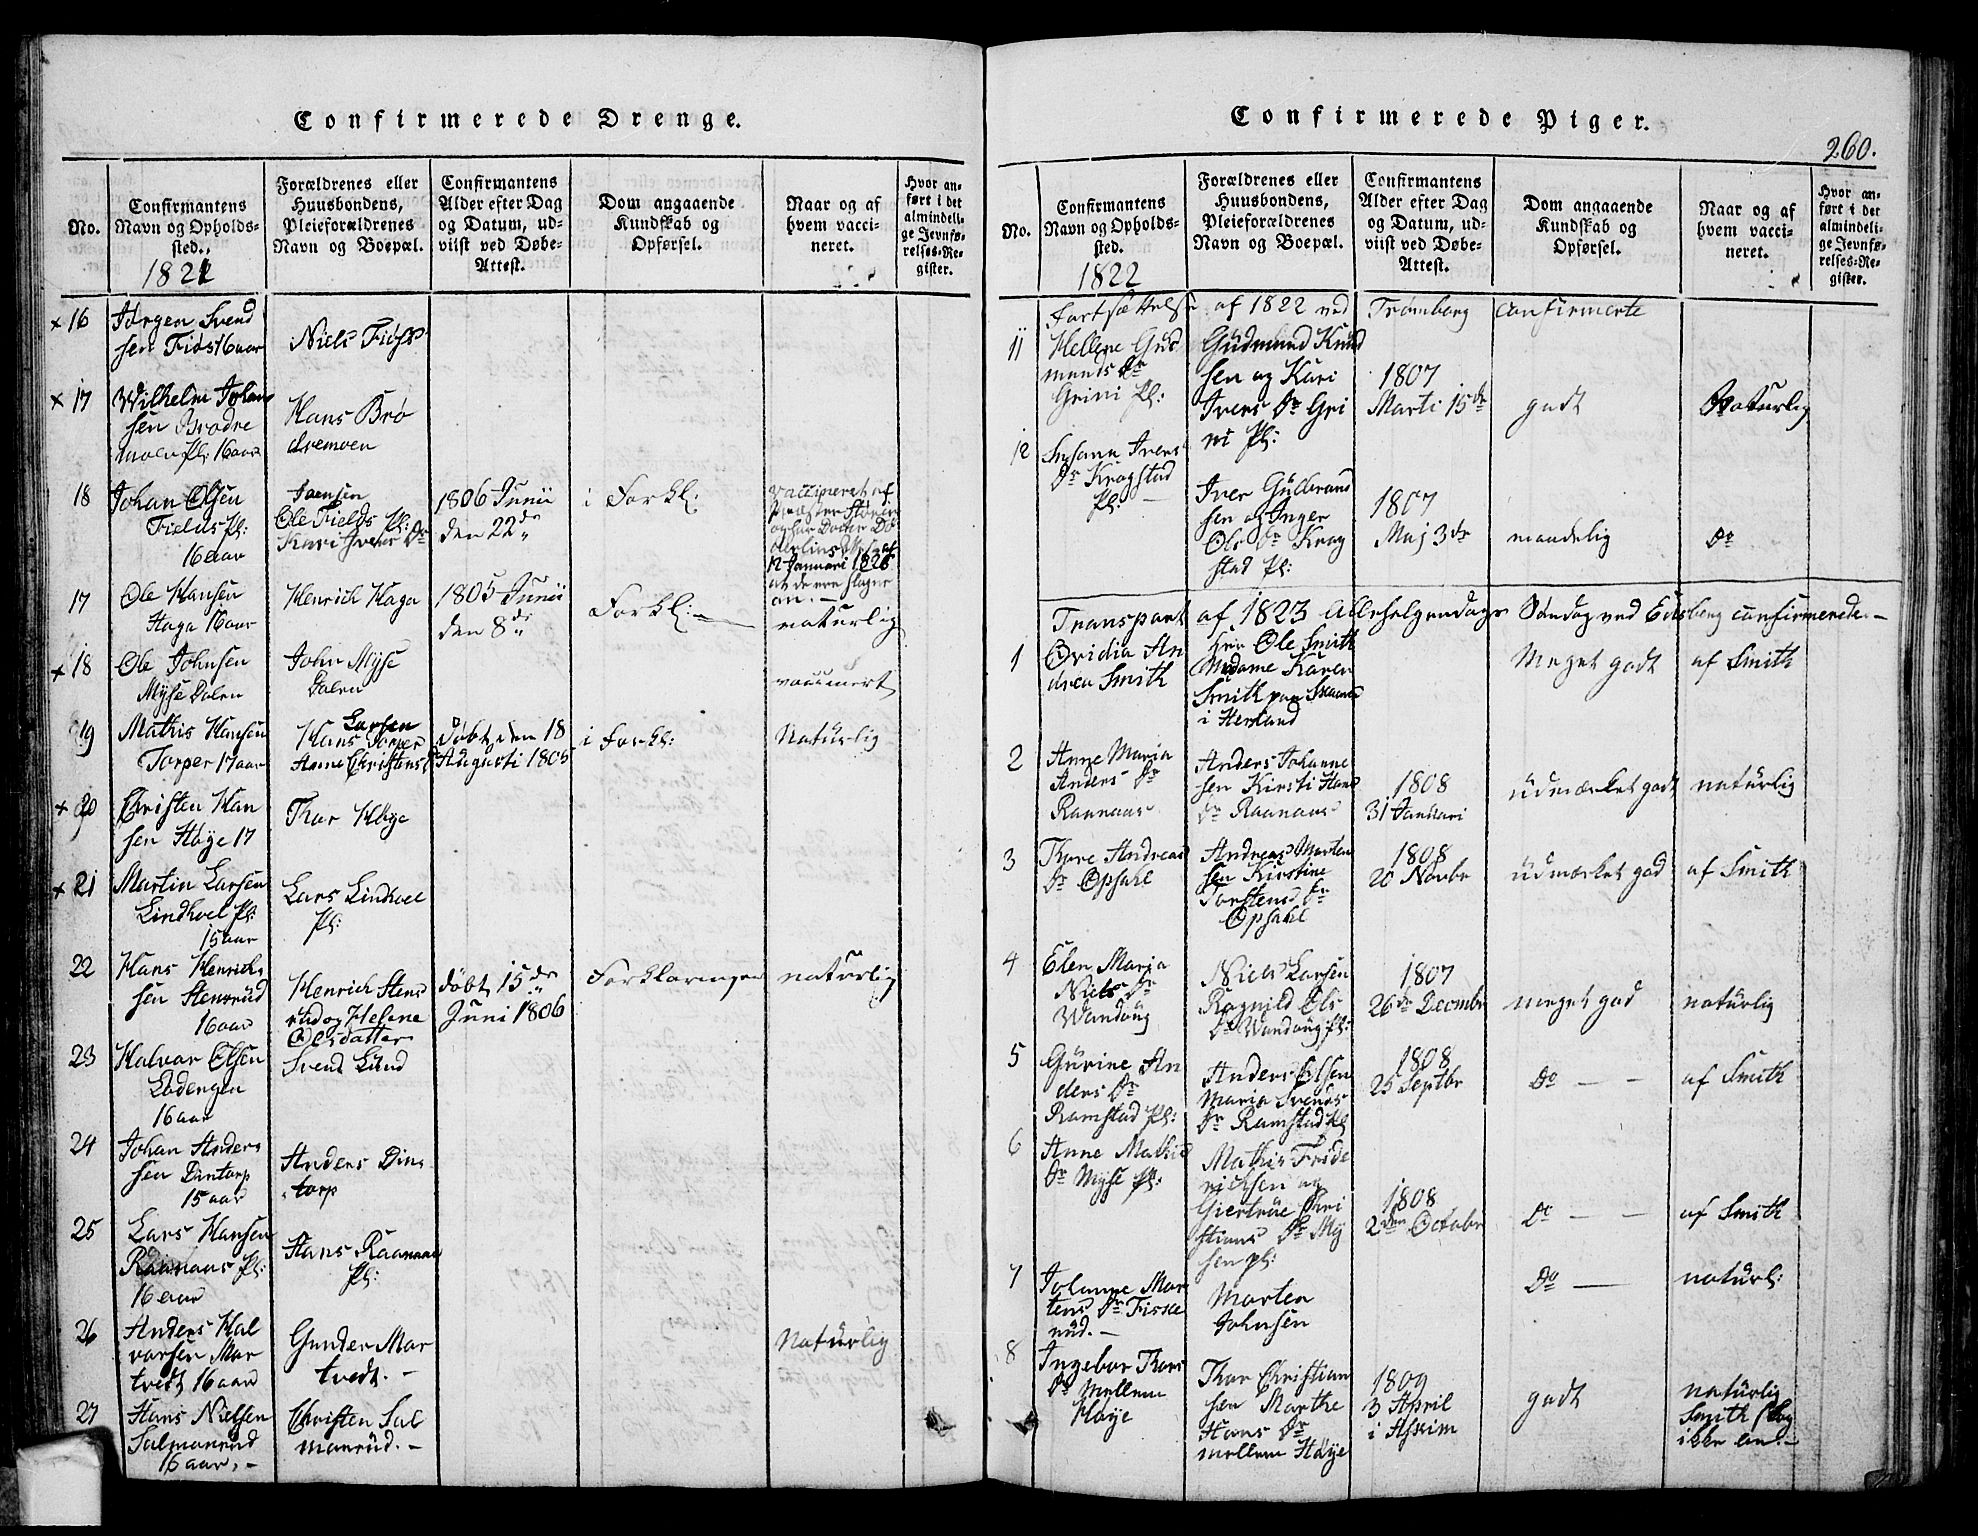 Confirmerede Drenge.
No.
Confirmantens
Navn og Opholds-
sted.
1822
Forældrenes eller
Huusbondens,
Pleieforældrenes
Navn og Boepæl.
Confirmantens
Alder efter Dag
og Datum, ud-
viist ved Døbe-
Attest.
Dom angaaende
Kundskab og
Opførsel.
Naar og af
hvem vacci-
neret.
Hvor an-
ført i det
almindeli-
ge Jevnfø-
relses-Re-
gister.
x 16
Jørgen Svend
sen Fiøs 16 aar
Niels Fiøs
x 17
Wilhelm Johan
sen Brødre
moen pl: 16 aar
Hans Brø
dremoen
18
Johan Olsen
Fields pl:
16 aar
Joensen
Ole Fields Pl:
Kari Iver Dr
1806 Junii
den 22de
i Forkl:
vaccineret af
12 Januari 1826
an. -
17
Ole Hansen
Haga 16 aar
Henrich Haga
1805 Junii
den 8de
Forkl: -
naturlig
x 18
Ole Johnsen
Myse Dalen
John Myse
Dalen
vaccinert
19
Mathis Hansen
Torper 17 aar
Larsen
Hans Torper
Anne Christens
døbt den 18
Augusti 1805
i Forkl:
Naturlig
x 20
Christen Han
sen Høye 17
Thor Høye
x 21
Martin Larsen
Lindhoel Pl:
15 aar
Lars Lindhoel
Pl:
22
Hans Henrich
sen Stensrud
16 aar
Henrich Stens
rud og Helene
Olesdatter
døbt 15de
Juni 1806
Forklaringen
naturlig
23
Halvor Olsen
Ladengen
16 aar
Svend Lund
24
Johan Anders
sen Dintorp
15 aar
Anders Din
torp
25
Lars Hansen
Raanaas pl:
16 aar
Hans Raanaas
Pl:
26
Anders Hal
vorsen Mor
tvedt 16 aar
Gunder Mor
tvedt. -
Naturlig
27
Hans Nielsen
Salmonrud
16 aar. -
Christen Sal
monrud. -
Confirmerede Piger.
260.
No.
Confirmantens
Navn og Opholds-
sted.
1822
Forældrenes eller
Huusbondens,
Pleieforældrenes
Navn og Boepæl.
Confirmantens
Alder efter Dag
og Datum, ud-
viist ved Døbe-
Attest.
Dom angaaende
Kundskab og
Opførsel.
Naar og af
hvem vacci-
neret.
Hvor an-
ført i det
almindeli-
ge Jevnfø-
relses-Re-
gister.
Fortsættelse af 1822 ved Trømborg confirmerte
11
Hellene Gud
munds Dr
Grini Pl:
Gudmund Knud
sen og Kari
Ivers Dr Gri
ni Pl:
1807
Marti 15de
godt
Naturlig
12
Susann Ivers
Dr Kragstad
Pl: -
Iver Gudbrand
sen og Inger
Ols Dr Krag
stad Pl:
1807
Maj 3de
maadelig
Do
Transport af 1823 Allehelgendags Søndag ved Eidsberg confirmerede. -
1
Ovidia An
drea Smith
Hrr Ole Smith
Madame Karen
Smith paa
i Herland
Meget godt
af Smith
2
Anne Maria
Anders Dr
Raanaas
Anders Johanne
sen Kirsti Hans
Dr Raanaas
1808
31 Januari
udmærket godt
naturlig
3
Thore Andreas
Dr Opsahl
Andreas Morten
sen Kirstine
Torstens Dr
Opsahl
1808
20 Novbr
udmærket god
af Smith
4
Elen Maria
Niels Dr
Wandüg
Niels Larsen
Ragnild Ols
Dr Wandüg pl:
1807
26de Decembr
meget god
naturlig
5
Gurine An
ders Dr
Ramstad Pl:
Anders Olsen
Maria Svends
Dr Ramstad Pl
1808
25 Septbr
Do - -
af Smith
6
Anne Mathis
Dr Myse pl:
Mathis Fride
richsen og
Giertrue Chri
stians Dr My
sen pl:
1808
2den Octobr
Do - -
af Smith
7
Johanne Mor
tens Dr Fiske
rud. -
Morten
Johnsen
Do -
naturl:
8
Ingebor Thors
Dr Mellem
Høye
Thor Christian
sen Marthe
Hans Dr
mellem Høye
1809
3 April
i Askim
godt
naturlig
Smith slog
ikke an. -